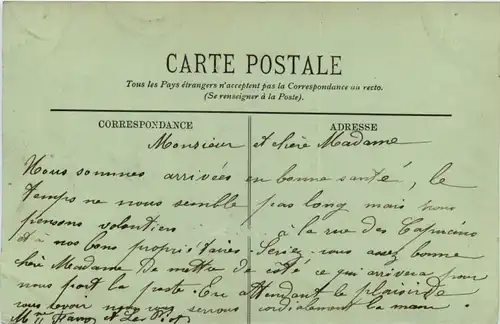 CARTE POSTALE
Tous les Pays étrangers n'acceptent pas la Correspondance au recto.
(Se renseigner à la Poste).
CORRESPONDANCE
ADRESSE
Monsieur et chère Madame
Nous sommes arrivées en bonne santé, le
temps ne nous semble pas long mais nous
pensons volontiers à la rue des Capucins
et à nos bons propriétaires. Seriez vous assez bonne
chère Madame De mettre de côté ce qui arrivera pour
nous par la poste. En attendant le plaisir de
vous revoir nous vous serrons cordialement la main